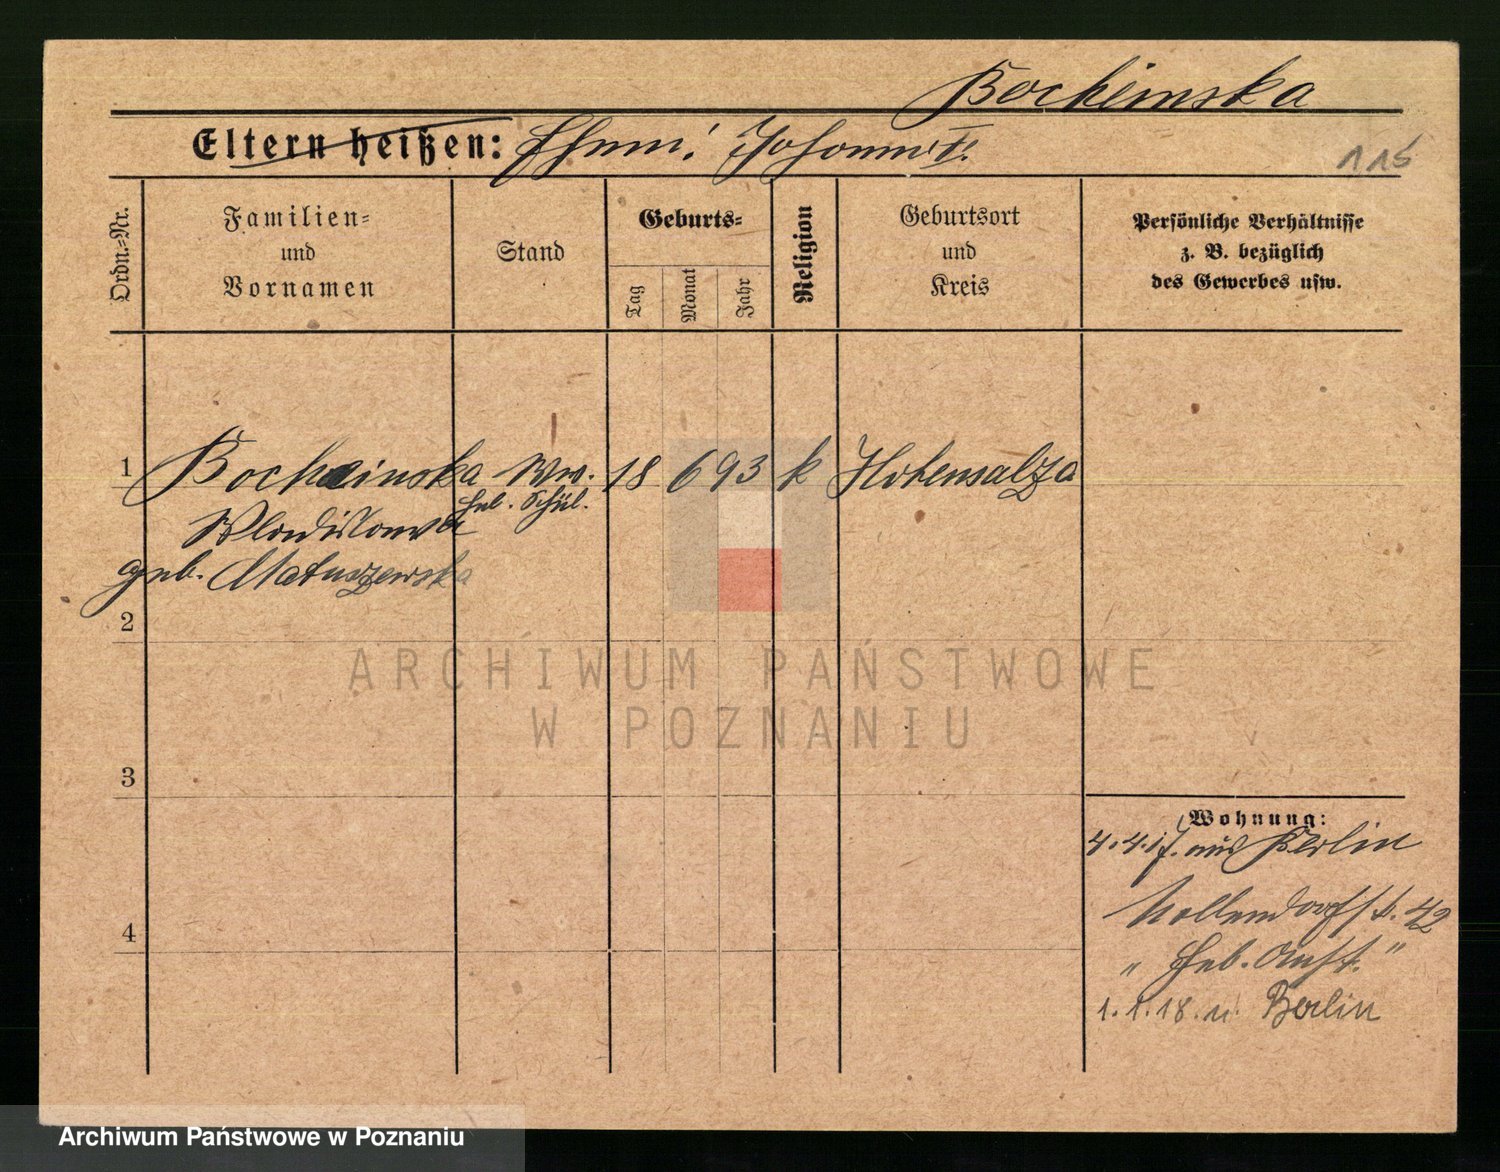 Bocheinska
Eltern heißen: Ehem: Johann †.
115
Ordn.=Nr.
Familien=
und
Vornamen
Stand
Geburts=
Tag
Monat
Jahr
Religion
Geburtsort
und
Kreis
Persönliche Verhältnisse
z. B. bezüglich
des Gewerbes usw.
1 Bocheinska Ww. 18 6 93 k Hohensalza
Heb. Schül.
Wladislawa
geb. Matuszewska
2
3
4
Wohnung:
4.4.17. aus Berlin
Nollendorfstr. 42
„ Heb. Anst. "
1.1.18. n. Berlin
ARCHIWUM PAŃSTWOWE
W POZNANIU
Archiwum Państwowe w Poznaniu